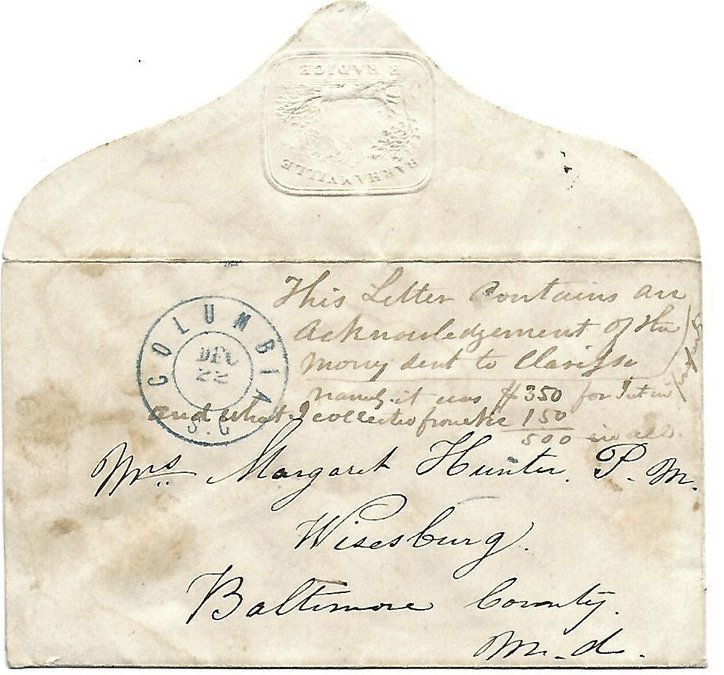 E RADICE
BARHAMVILLE
COLUMBIA
DEC
22
S.C
This Letter contains an
Acknowledgement of the
mony sent to Clarisse
namely it was $350 for
and what I collected from the 150
500 in all.
Mrs. Margaret Hunter. P. M.
Wisesburg.
Baltimore County.
M. d.